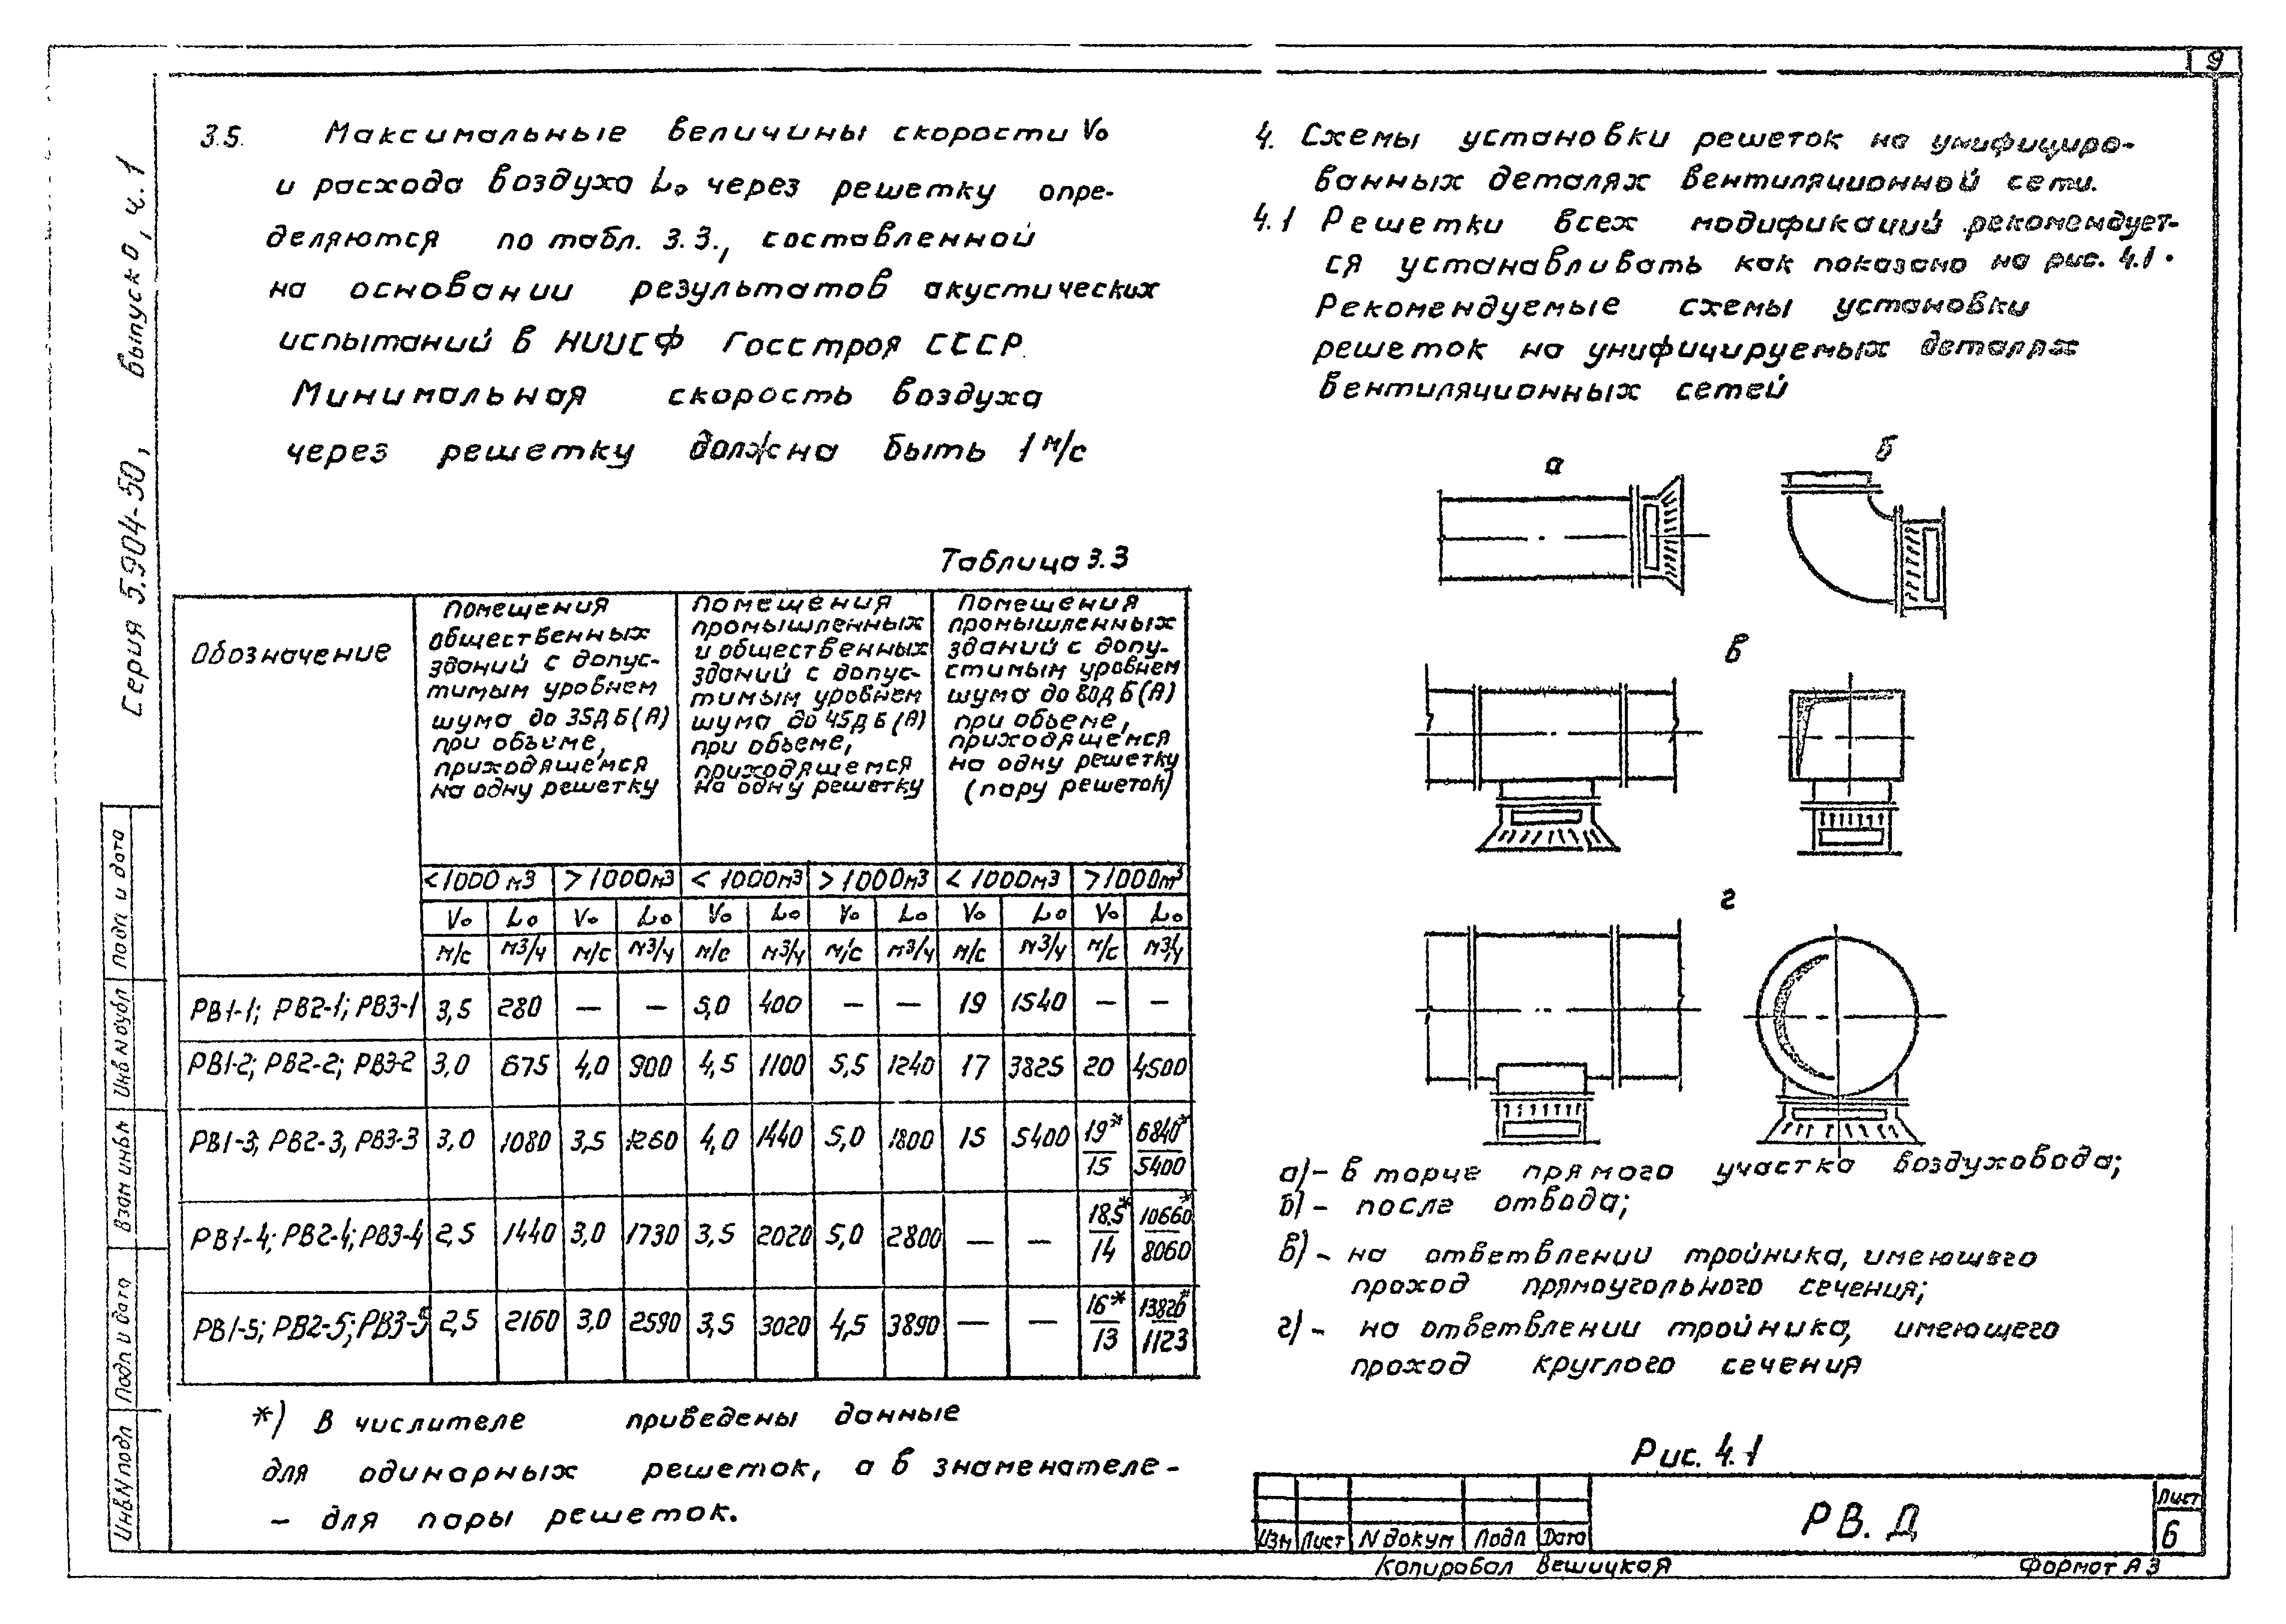 9
Серия 5.904-50, выпуск 0, ч. 1
3.5. Максимальные величины скорости V₀
и расхода воздуха L₀ через решетку опре-
деляются по табл. 3.3., составленной
на основании результатов акустических
испытаний в НИИСФ Госстроя СССР.
Минимальная скорость воздуха
через решетку должна быть 1 м/с
Таблица 3.3
Обозначение
Помещения
общественных
зданий с допус-
тимым уровнем
шума до 35дБ(А)
при объеме,
приходящемся
на одну решетку
Помещения
промышленных
и общественных
зданий с допус-
тимым уровнем
шума до 45дБ(А)
при объеме,
приходящемся
на одну решетку
Помещения
промышленных
зданий с допу-
стимым уровнем
шума до 80дБ(А)
при объеме,
приходящемся
на одну решетку
(пару решеток)
<1000 м3 >1000м3 <1000м3 >1000м3 <1000м3 >1000м³
V₀ L₀ V₀ L₀ V₀ L₀ V₀ L₀ V₀ L₀ V₀ L₀
м/с м3/ч м/с м3/ч м/с м3/ч м/с м3/ч м/с м3/ч м/с м3/ч
РВ1-1; РВ2-1; РВ3-1 3,5 280 — — 5,0 400 — — 19 1540 — —
РВ1-2; РВ2-2; РВ3-2 3,0 675 4,0 900 4,5 1100 5,5 1240 17 3825 20 4500
РВ1-3; РВ2-3, РВ3-3 3,0 1080 3,5 1260 4,0 1440 5,0 1800 15 5400 19*/15 6840*/5400
РВ1-4; РВ2-4; РВ3-4 2,5 1440 3,0 1730 3,5 2020 5,0 2800 — — 18,5*/14 10660*/8060
РВ1-5; РВ2-5; РВ3-5 2,5 2160 3,0 2590 3,5 3020 4,5 3890 — — 16*/13 13820*/1123
*) В числителе приведены данные
для одинарных решеток, а в знаменателе -
- для пары решеток.
4. Схемы установки решеток на унифициро-
ванных деталях вентиляционной сети.
4.1 Решетки всех модификаций рекомендует-
ся устанавливать как показано на рис. 4.1.
Рекомендуемые схемы установки
решеток на унифицируемых деталях
вентиляционных сетей
а
б
в
г
а) - в торце прямого участка воздуховода;
б) - после отвода;
в) - на ответвлении тройника, имеющего
проход прямоугольного сечения;
г) - на ответвлении тройника, имеющего
проход круглого сечения
Рис. 4.1
Изм Лист N докум Подп Дата
РВ. Д
Лист
6
Копировал Вешицкая
Формат А3
Инв N подл Подп и дата Взам инв N Инв N дубл Подп и дата